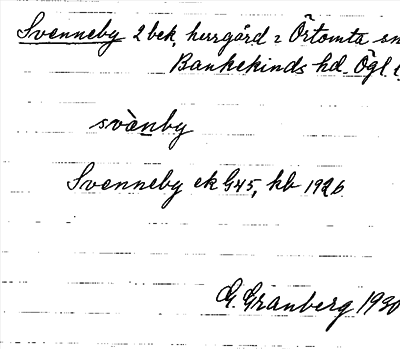 Svenneby 2 bek, herrgård i Örtomta sn
Bankekinds hd. Ögl. l.
svànby
Svenneby ek G45, kb 1926.
G. Granberg 1930